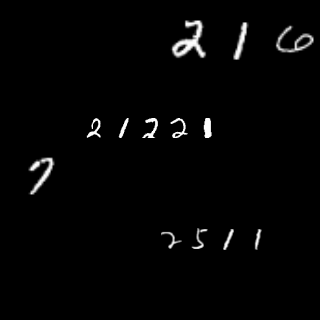 216
21221
7
2511